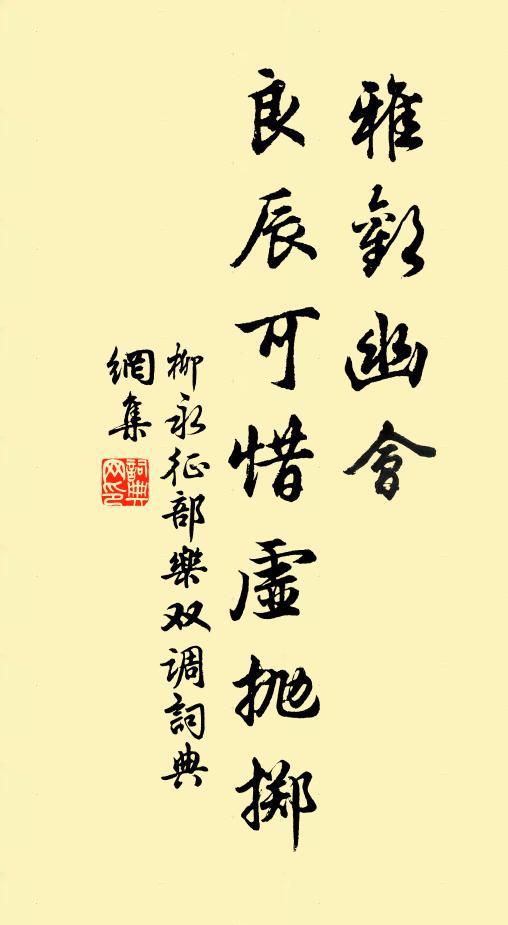 雅歡幽會
良辰可惜虛抛掷
柳永征部樂双调詞典
網集
詞典网印